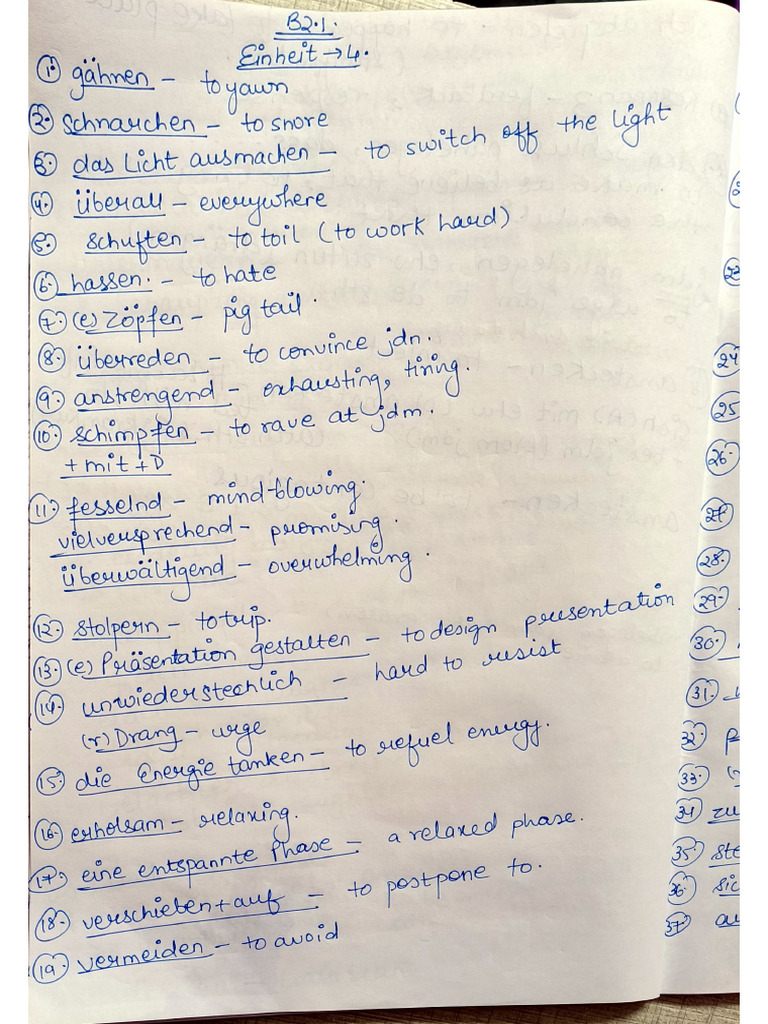 B2.1.
Einheit → 4.
1. gähnen - to yawn
2. schnarchen - to snore
3. das Licht ausmachen - to switch off the light
4. überall - everywhere
5. schuften - to toil (to work hard)
6. hassen. - to hate
7. (e) Zöpfen - pig tail.
8. überreden - to convince jdn.
9. anstrengend - exhausting, tiring.
10. schimpfen - to rave at jdm.
+mit+D
11. fesselnd - mind-blowing.
vielversprechend - promising.
überwältigend - overwhelming.
12. stolpern - to trip.
13. (e) Präsentation gestalten - to design presentation
14. unwiederstechlich - hard to resist
(r) Drang - urge
15. die Energie tanken - to refuel energy.
16. erholsam - relaxing.
17. eine entspannte Phase - a relaxed phase.
18. verschieben + auf - to postpone to.
19. vermeiden - to avoid
24
25
26.
28.
29.
30.
31.
32.
33.
34 zu
35 ste
36. sic
37. au